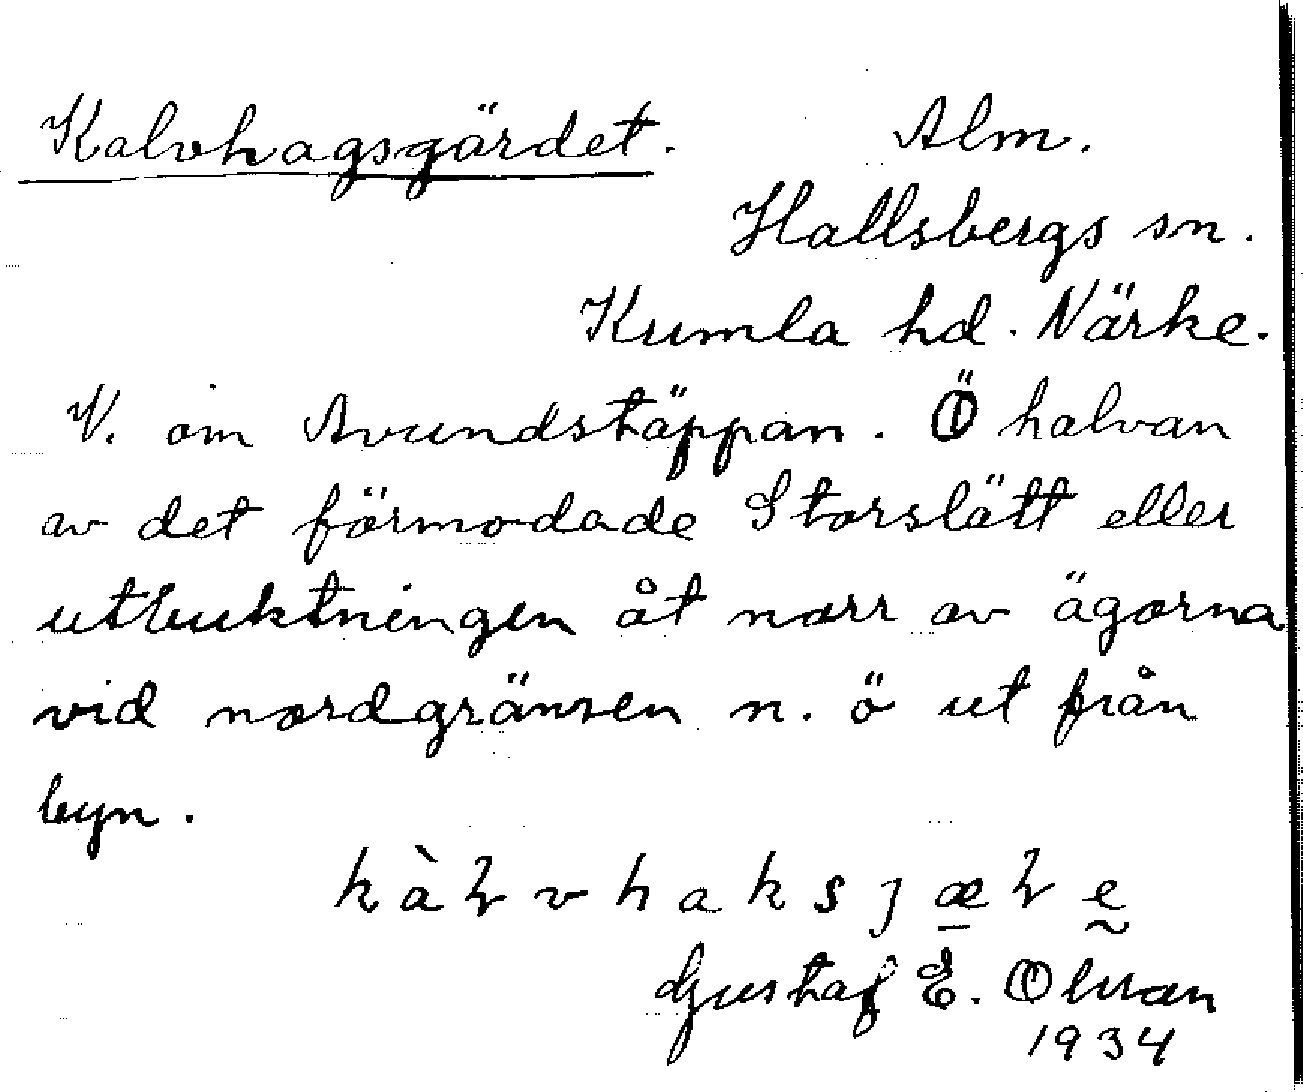 Kalvhagsgärdet. Alm.
Hallsbergs sn.
Kumla hd. Närke.
V. om Avundstäppan. Ö halvan
av det förmodade Storslätt eller
utbuktningen åt norr av ägorna
vid nordgränsen n. ö ut från
byn.
kàɽvhaksjæɽe
Gustaf E. Olsson
1934